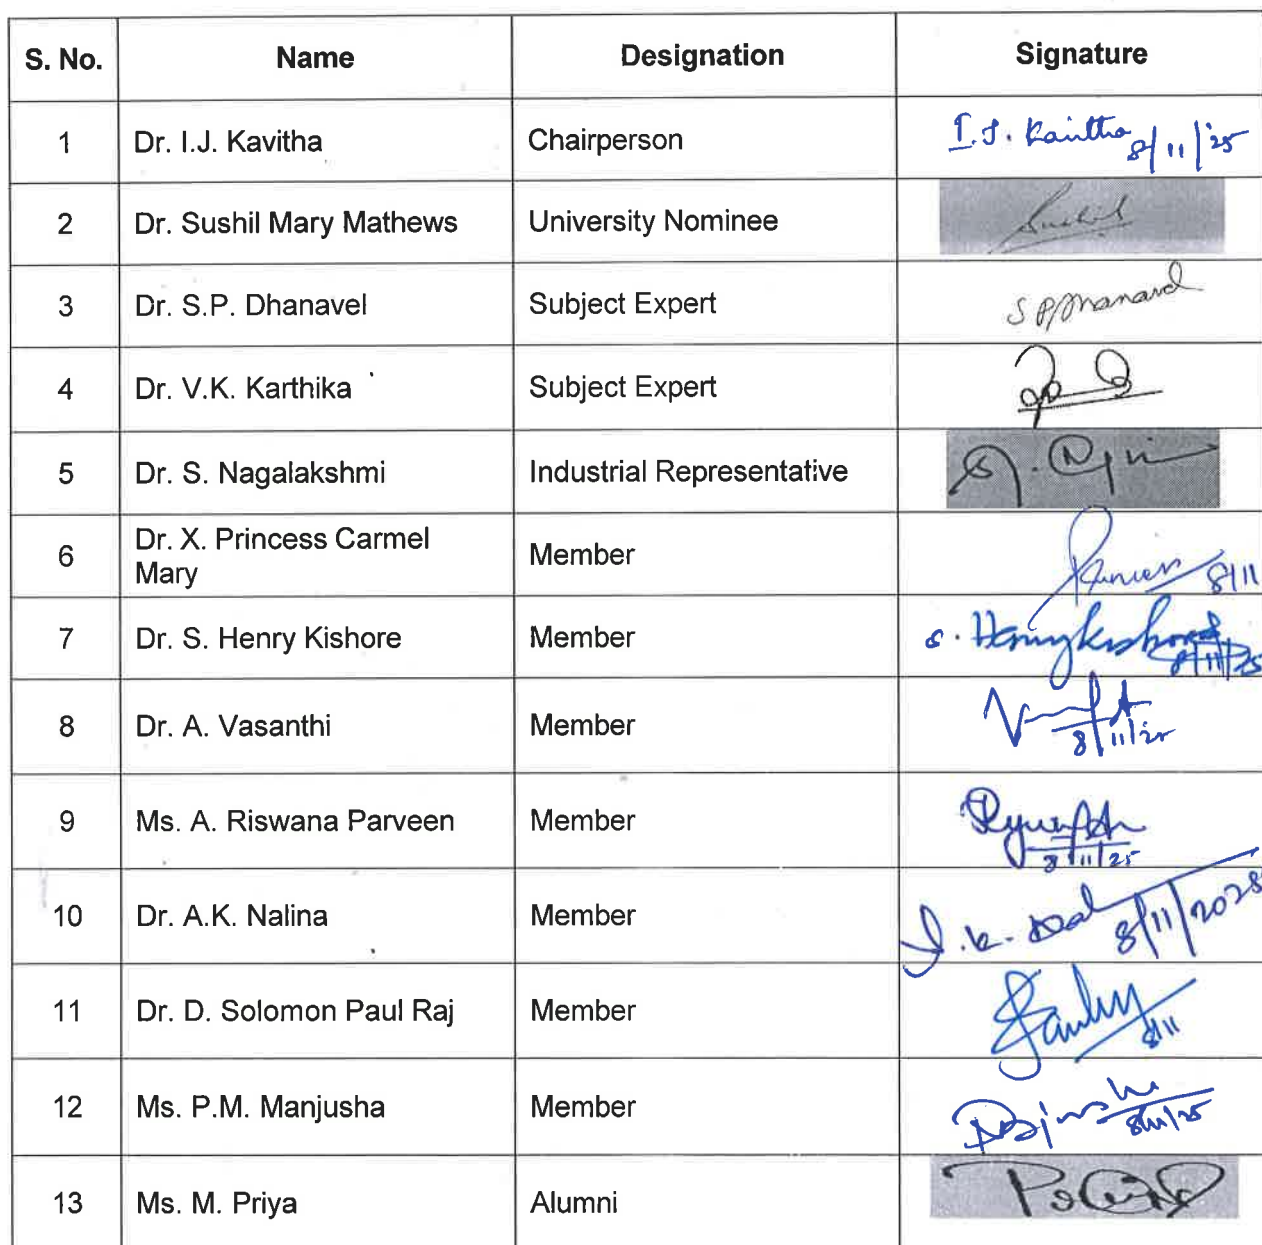 S. No. Name Designation Signature
1 Dr. I.J. Kavitha Chairperson I.J. Kavitha 8/11/'25
2 Dr. Sushil Mary Mathews University Nominee Sushil
3 Dr. S.P. Dhanavel Subject Expert S P Dhanavel
4 Dr. V.K. Karthika Subject Expert
5 Dr. S. Nagalakshmi Industrial Representative
6 Dr. X. Princess Carmel
Mary Member Princess 8/11
7 Dr. S. Henry Kishore Member S. Henry Kishore 8/11/25
8 Dr. A. Vasanthi Member 8/11/25
9 Ms. A. Riswana Parveen Member 8/11/25
10 Dr. A.K. Nalina Member 8/11/2025
11 Dr. D. Solomon Paul Raj Member 8/11
12 Ms. P.M. Manjusha Member 8/11/25
13 Ms. M. Priya Alumni